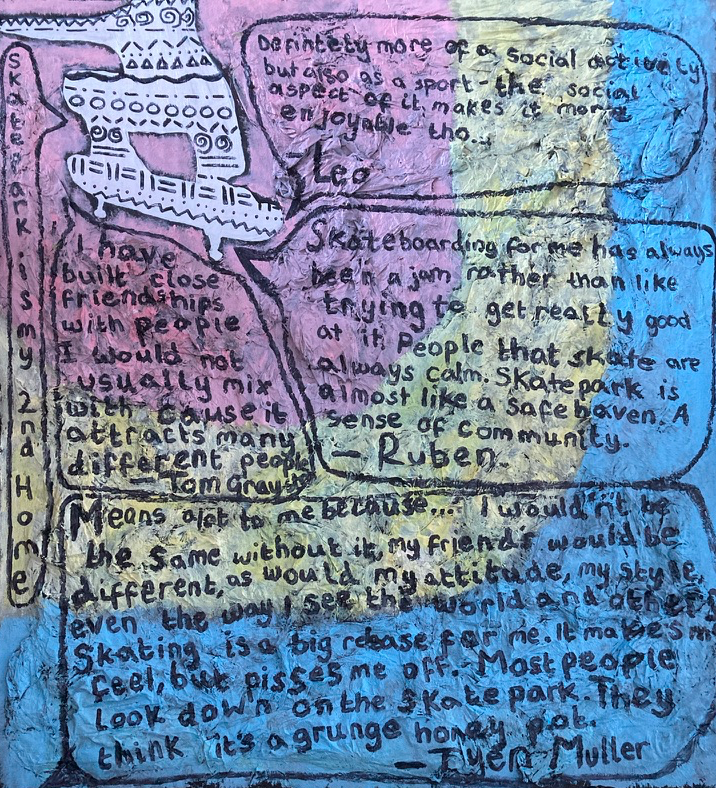 Skatepark is my 2nd Home
Defintety more of a social activity
but also as a sport - the social
aspect of it makes it more
enjoyable tho...
Leo
I have
built close
friendships
with people
I would not
usually mix
with cause it
attracts many
different people
— Tom Gray
Skateboarding for me has always
been a jam rather than like
trying to get really good
at it. People that skate are
always calm. Skatepark is
almost like a safe haven. A
sense of community.
— Ruben
Means alot to me because... I wouldn't be
the same without it, my friends would be
different, as would my attitude, my style,
even the way I see the world and others
Skating is a big release for me. It makes m
feel, but pisses me off. Most people
look down on the skatepark. They
think it's a grunge honey pot.
— Muller